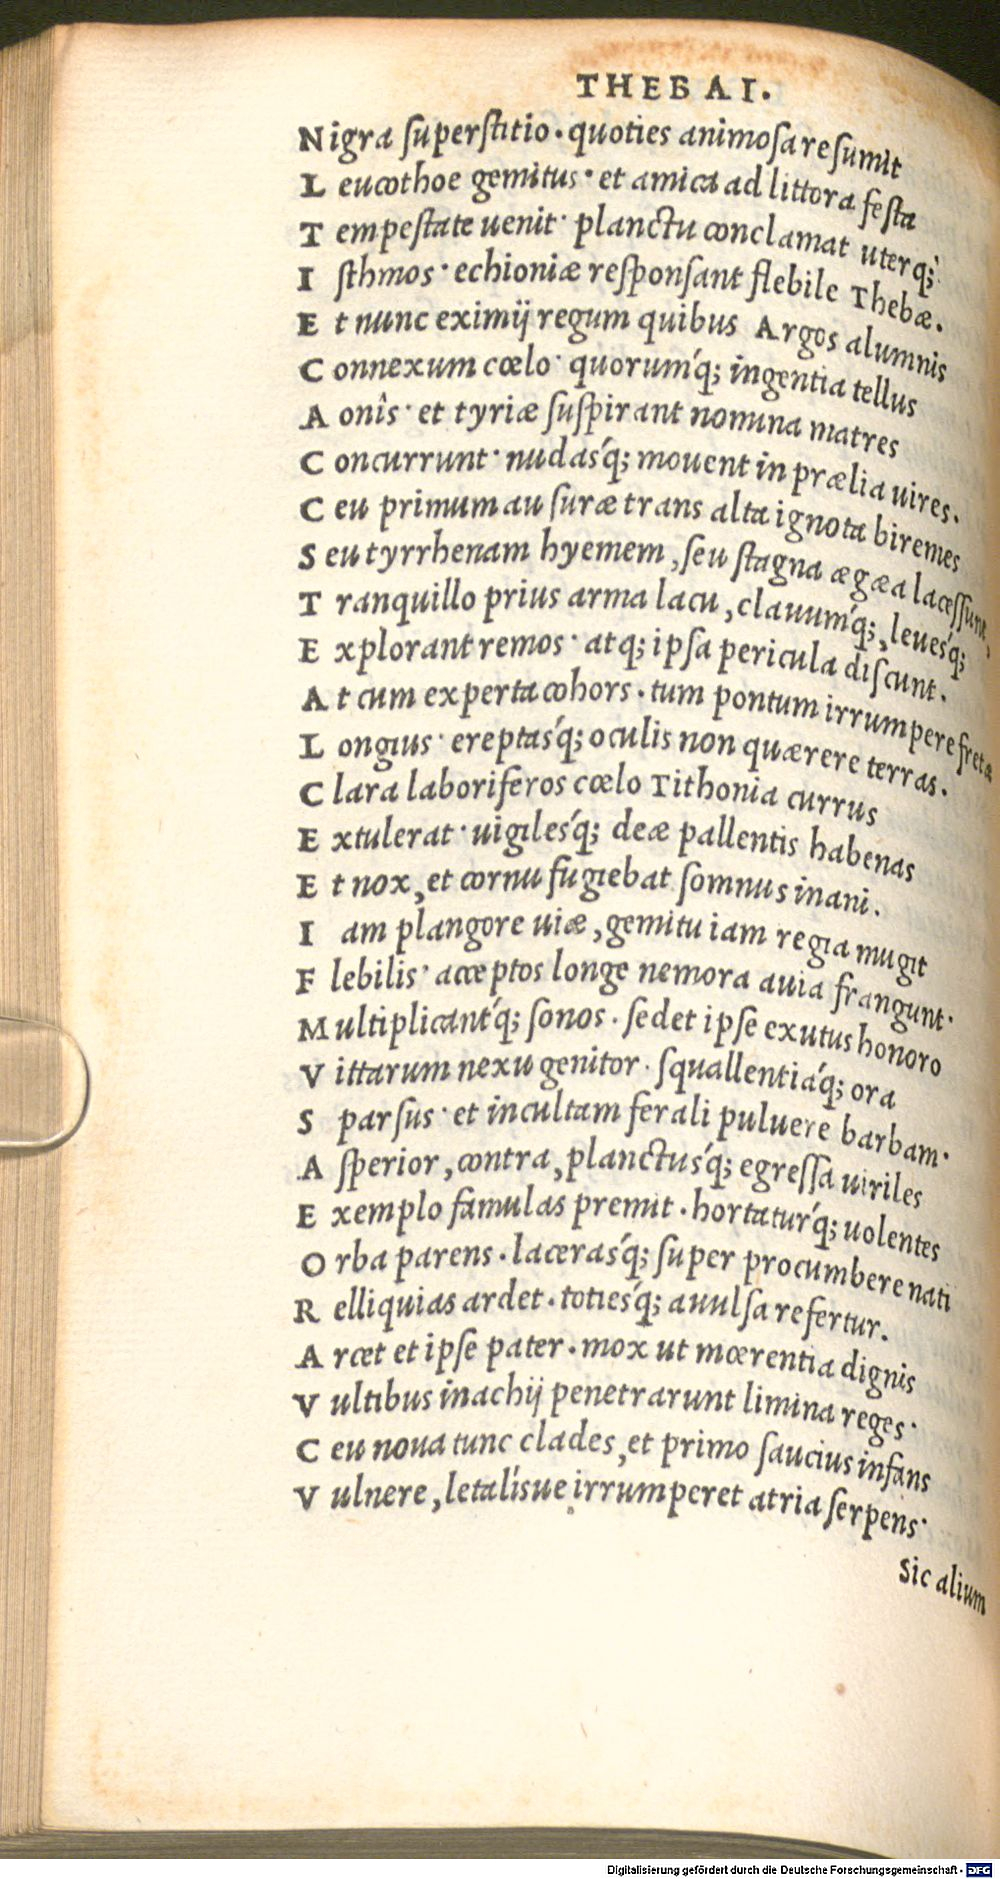 THEBAI.
Nigra superstitio. quoties animosa resumit
L eucothoe gemitus. et amica ad littora festa
T empestate uenit. planctu conclamat uterq;.
I sthmos. echioniæ responsant flebile Thebæ.
E t nunc eximij regum quibus Argos alumnis
C onnexum cœlo. quorumq́; ingentia tellus
A onîs. et tyriæ suspirant nomina matres
C oncurrunt. nudasq́; mouent in prælia uires.
C eu primum ausuræ trans alta ignota biremes
S eu tyrrhenam hyemem, seu stagna ægæa lacessunt,
T ranquillo prius arma lacu, clauumq́;, leuesq́;
E xplorant remos. atq; ipsa pericula discunt.
A t cum experta cohors. tum pontum irrumpere fretæ
L ongius. ereptasq́; oculis non quærere terras.
C lara laboriferos cœlo Tithonia currus
E xtulerat. uigilesq́; deæ pallentis habenas
E t nox, et cornu fugiebat somnus inani.
I am plangore uiæ, gemitu iam regia mugit
F lebilis. acceptos longe nemora auia frangunt.
M ultiplicantq́; sonos. sedet ipse exutus honoro
V ittarum nexu genitor. squallentiaq́; ora
S parsus. et incultam ferali puluere barbam.
A sperior, contra, planctusq́; egressa uiriles
E xemplo famulas premit. hortaturq́; uolentes
O rba parens. lacerasq́; super procumbere nati
R elliquias ardet. totiesq́; auulsa refertur.
A rcet et ipse pater. mox ut mœrentia dignis
V ultibus inachij penetrarunt limina reges.
C eu noua tunc clades, et primo saucius infans
V ulnere, letalísue irrumperet atria serpens.
Sic alium
Digitalisierung gefördert durch die Deutsche Forschungsgemeinschaft - DFG